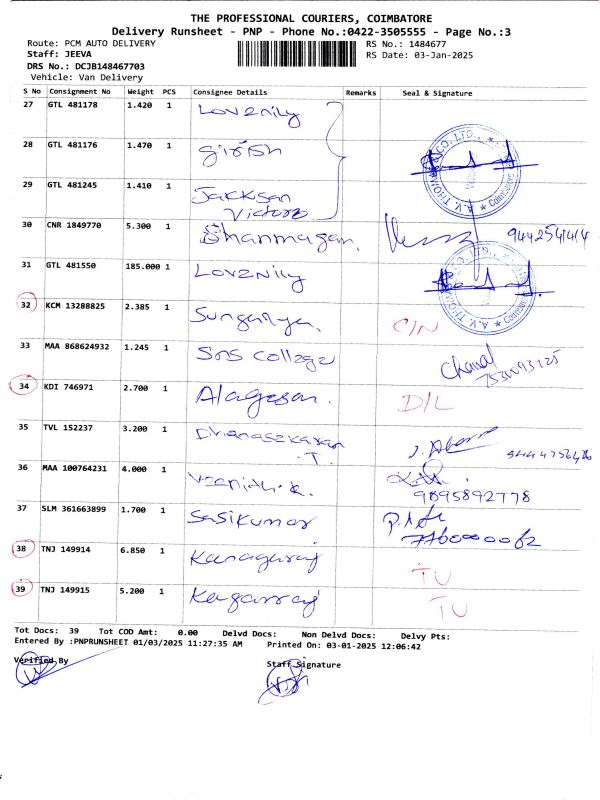 THE PROFESSIONAL COURIERS, COIMBATORE
Delivery Runsheet - PNP - Phone No.:0422-3505555 - Page No.:3
Route: PCM AUTO DELIVERY RS No.: 1484677
Staff: JEEVA RS Date: 03-Jan-2025
DRS No.: DCJB148467703
Vehicle: Van Delivery
S No Consignment No Weight PCS Consignee Details Remarks Seal & Signature
27 GTL 481178 1.420 1 Lovenily
28 GTL 481176 1.470 1 girish
29 GTL 481245 1.410 1 Jakksan
Victors
30 CNR 1849770 5.300 1 Shanmugan. 9442541414
31 GTL 481550 185.000 1 Lovenily
32 KCM 13288825 2.385 1 C/N
33 MAA 868624932 1.245 1 SNS College
34 KDI 746971 2.700 1 Alagesan. D/L
35 TVL 152237 3.200 1 Dhanasekaran
. T.
36 MAA 100764231 4.000 1 9895892778
37 SLM 361663899 1.700 1 Sasikumar
38 TNJ 149914 6.850 1 Kanagaraj TU
39 TNJ 149915 5.200 1 TU
Tot Docs: 39 Tot COD Amt: 0.00 Delvd Docs: Non Delvd Docs: Delvy Pts:
Entered By :PNPRUNSHEET 01/03/2025 11:27:35 AM Printed On: 03-01-2025 12:06:42
Verified By Staff Signature